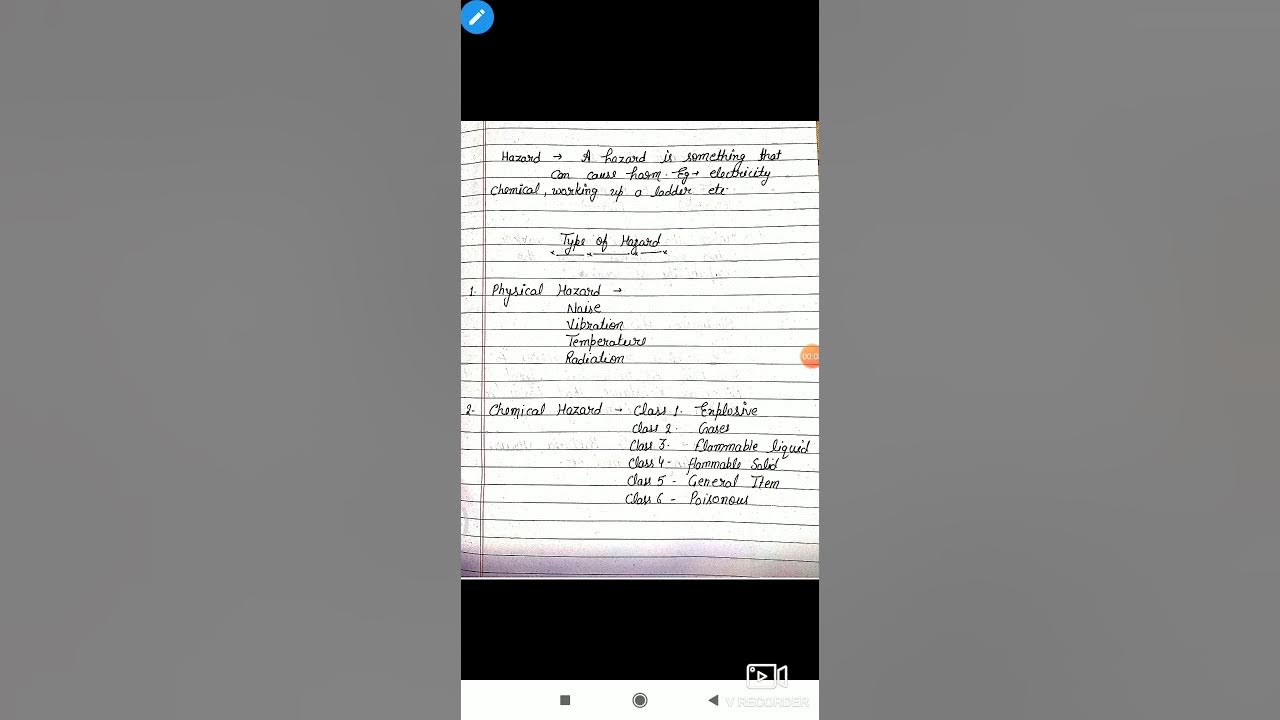 Hazard → A hazard is something that
can cause harm. Eg → electricity
chemical, working up a ladder etc
Type of Hazard
1. Physical Hazard →
Naise
Vibration
Temperature
Radiation
00:0
2- Chemical Hazard → Class 1. Explosive
Class 2. Gases
Class 3. - flammable liquid
Class 4 - flammable Solid
Class 5 - General Item
Class 6 - Poisonous
V RECORDER